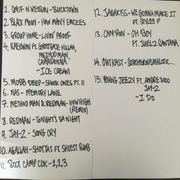 1. SMIF N WESSUN - BUCKTOWN
2. BLACK MOON - HOW MANY EMCEES
3. GROUP HOME - LIVIN' PROOF
4. RAEKWON FT. GHOSTFACE KILLAH,
METHOD MAN
CAPPADONNA -
- ICE CREAM
5. MOBB DEEP - SHOOK ONES PT. II
6. NAS - MEMORY LANE
7. METHOD MAN & REDMAN - HOW HIGH
(REMIX)
8. REDMAN - TONIGHT'S DA NIGHT
9. JAY-Z - SONG CRY
10. AGALLAH -
11. BOOT CAMP CLIK - 1,2,3
12. JADAKISS - WE GONNA MAKE IT
FT. STYLES P
13. CAM'RON - OH BOY
FT. JUELZ SANTANA
14. OUTKAST -
15. YOUNG JEEZY FT. ANDRE 3000
JAY-Z
- I DO